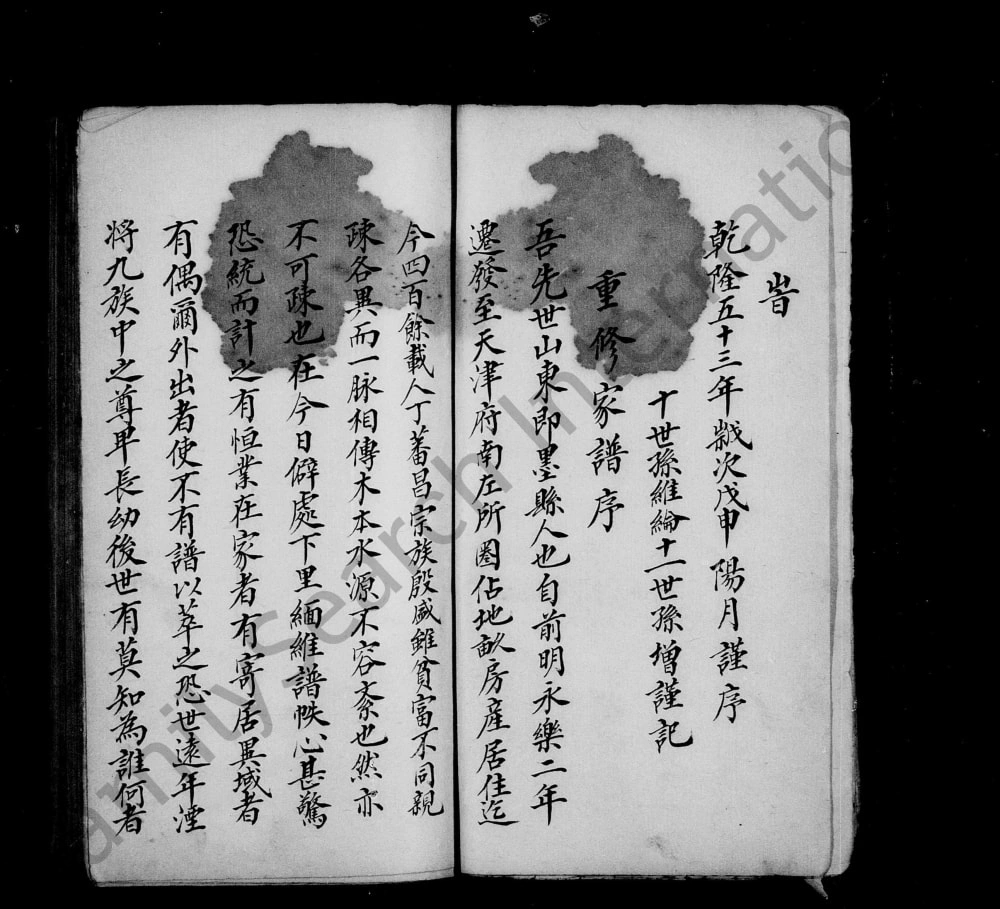 旹
乾隆五十三年歲次戊申陽月謹序
十世孫維綸十一世孫增謹記
重修家譜序
吾先世山東即墨縣人也自前明永樂二年
遷發至天津府南左所圈佔地畝房産居住迄
今四百餘載人丁蕃昌宗族殷盛雖貧富不同親
疎各異而一脉相傳木本水源不容紊也然亦
不可疎也在今日僻處下里緬維譜帙心甚驚
恐統而計之有恒業在家者有寄居異域者
有偶爾外出者使不有譜以萃之恐世遠年湮
将九族中之尊卑長幼後世有莫知為誰何者
FamilySearch International